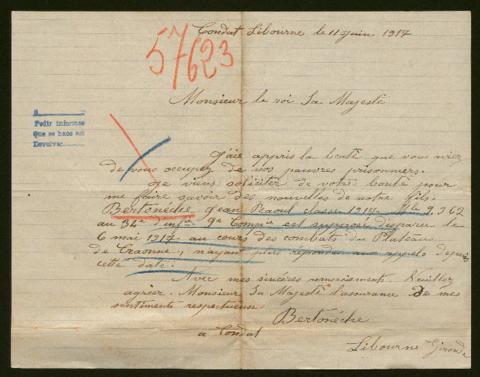 57623
Condat Libourne le 11 juin 1917
Monsieur le roi Sa Majesté
Pedir informes
Que se hace así
Devolver
J'aie appris la bonté que vous aviez
de vous occupez de nos pauvres prisonniers.
Je viens soliciter de votre bonté pour
me faire savoir des nouvelles de notre fils.
Bertonèche Jean Raoul classe 1917 9362
au 34e d'inftrie 9e Compie est supposer disparu le
6 mai 1917 au cours des combats du Plateau
de Craonne, n'ayant pas répondu aux appels depuis
cette date.
Avec mes sincères remerciements. Veuillez
agréer Monsieur Sa Majesté l'assurance de mes
sentiments respectueux
Bertonèche
à Condat
Libourne Gironde